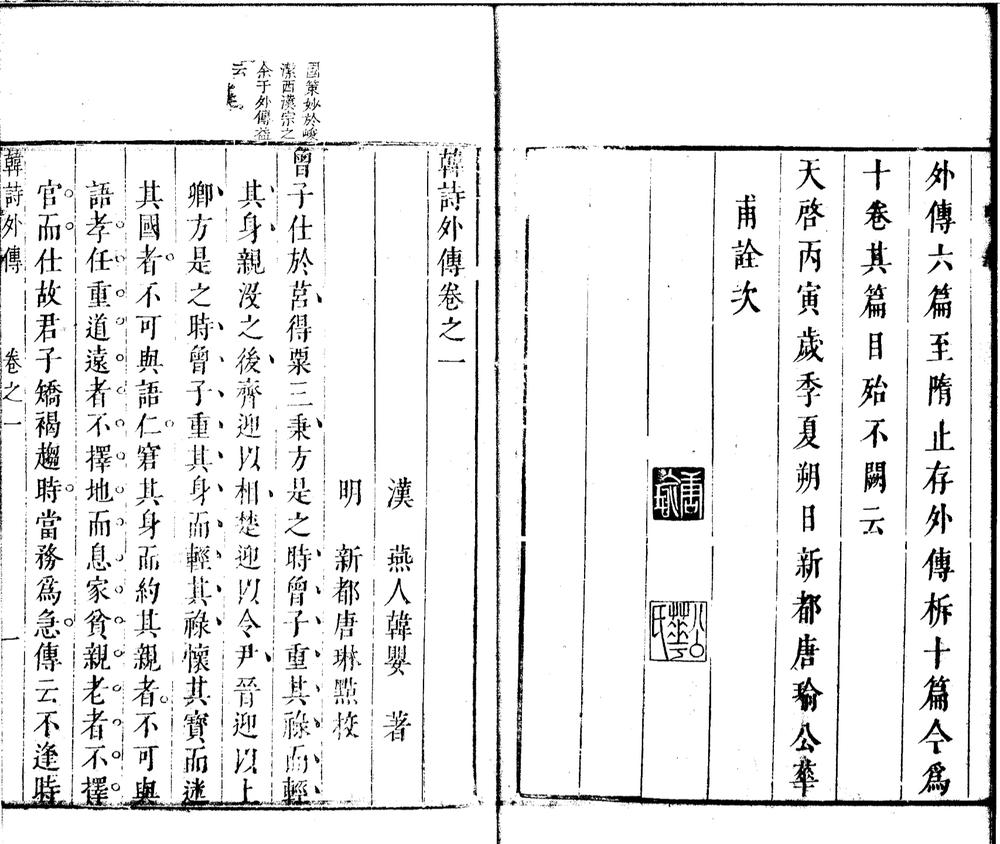 外傳六篇至隋止存外傳析十篇今爲
十卷其篇目殆不闕云
天啓丙寅歲季夏朔日新都唐瑜公華
甫詮次
唐瑜
公華氏
韓詩外傳卷之一
漢 燕人韓嬰 著
明 新都唐琳點校
國策妙於峻
潔西漢宗之
余于外傳益
云
曾子仕於莒得粟三秉方是之時曾子重其祿而輕
其身親没之後齊迎以相楚迎以令尹晉迎以上
卿方是之時曾子重其身而輕其祿懷其寶而迷
其國者不可與語仁窘其身而約其親者不可與
語孝任重道遠者不擇地而息家貧親老者不擇
官而仕故君子矯褐趨時當務爲急傳云不逢時
韓詩外傳 卷之一 一